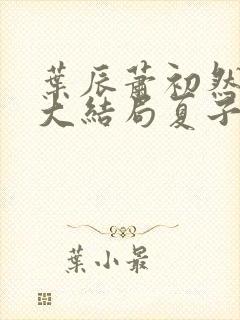 葉辰蕭初然
大結局夏子
葉小最